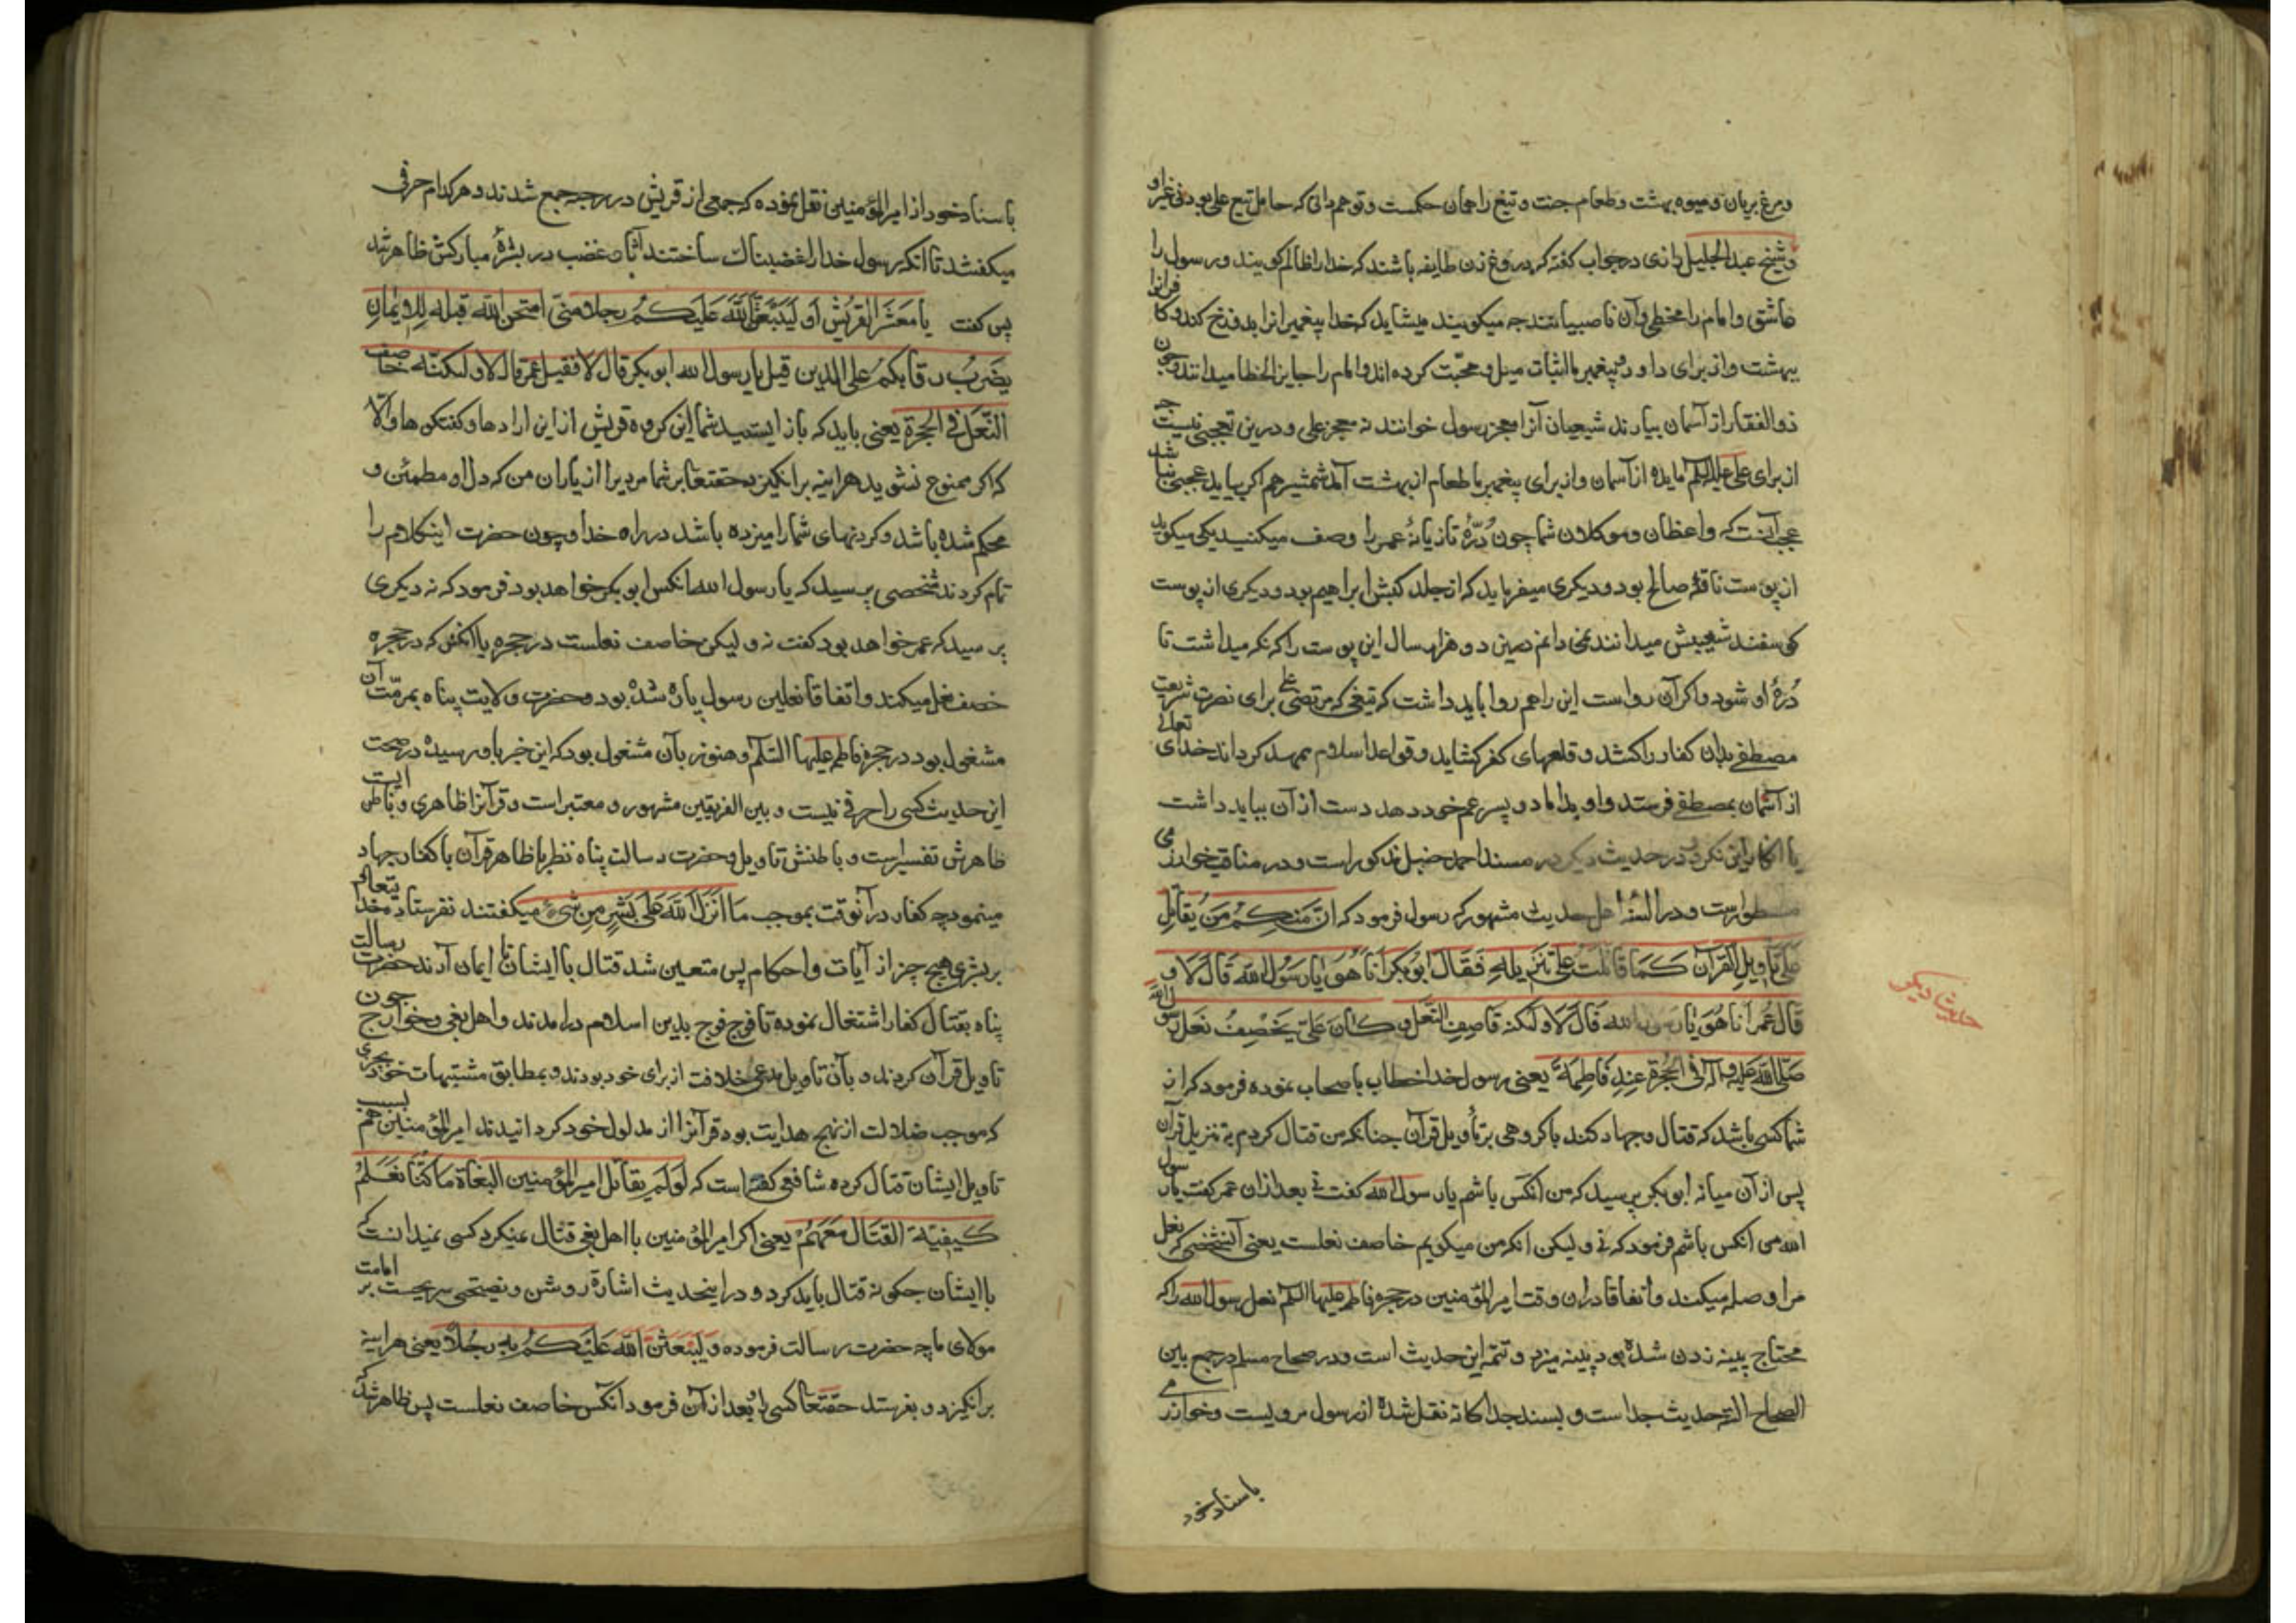 ومرغ بریان ومیوه بهشت وطعام جنت وتیغ را همان حکمست وتوهم دانی که حامل تیغ علی بود نی غیر او
وشیخ عبد الجلیل رازی در جواب گفته که دروغ زن طایفه باشند که خدا را ظالم گویند ورسول را
عاشق وامام را مخطی وآن ناصبیانند چه میگویند میشاید که خدا پیغمبرانرا بدوزخ کند و کافرانرا
ببهشت واز برای داود وپیغمبر ما اثبات میل ومحبّت کرده اند وامام را جایز الخطا میدانند وچون
ذو الفقار از آسمان بیارند شیعیان آنرا معجز رسول خوانند نه معجز علی ودرین تعجبی نیست چه
از برای علی علیه السلم مایده از آسمان واز برای پیغمبر ما طعام از بهشت آمد شمشیر هم اگر بیاید عجبی نباشد
عجب آنست که واعظان وموکلان شما چون دُرّهٔ تازیانهٔ عمر را وصف میکنند یکی میگوید
از پوست ناقهٔ صالح بود ودیگری میفرماید که از جلد کبش ابراهیم بود ودیگری از پوست
گوسفند شعیبش میدانند نمی دانم دو هزار سال این پوست را که نگه میداشت تا
دُرّهٔ او شود واگر آن رواست این را هم روا باید داشت که تیغی که مرتضی علی برای نصرت شریعت
مصطفی بدان کفار را کشد وقلعهای کفر گشاید وقواعد اسلام ممهد گرداند خدای تعالی
از آسمان بمصطفی فرستد واو بداماد وپسر عم خود دهد دست از آن بباید داشت
یا انکار این نکردن در حدیث دیگر در مسند احمد حنبل مذکور است ودر مناقب خوارزمی
مسطور است ودر السنهٔ اهل حدیث مشهور که رسول فرمود که انّ منکم من یقاتل
علی تاویل القرآن کما قاتلت علی تنزیله فقال ابو بکر انا هو یا رسول الله قال لا و
قال عمر انا هو یا رسول الله قال لا ولکنه قاصف النّعل و کان علیّ یخصف نعل رسول الله
صلّی الله علیه وآله فی الحجرة عند فاطمة یعنی رسول خدا خطاب باصحاب نموده فرمود که از
شما کسی باشد که قتال وجهاد کند با گروهی بر تأویل قرآن چنانکه من قتال کردم بر تنزیل قرآن
پس از آن میانه ابو بکر پرسید که من آنکس باشم یا رسول الله گفت نی بعد از ان عمر گفت یا رسول
الله من آنکس باشم فرمود که نی ولیکن آنکه من میگویم خاصف نعلست یعنی آنشخصی که نعل
مرا وصله میکند واتفاقا در ان وقت امیر المؤمنین در حجره فاطمه علیها السلم نعل رسول الله را که
محتاج پینه زدن شده بود پینه میزد وتتمه این حدیث است ودر صحاح مسلم در جمع بین
الصحاح الستّه حدیث جداست وبسند جداگانه نقل شده از رسول مرویست وخوارزمی
باسناد خود
حدیث دیگر
باسناد خود از امیر المؤمنین نقل نموده که جمعی از قریش در رحبه جمع شدند وهر کدام حرفی
میگفتند تا آنکه رسول خدا را غضبناک ساختند آثار غضب در بشرهٔ مبارکش ظاهر شد
پس گفت یا معشر القریش او لیبعثنّ الله علیکم رجلا منّی امتحن الله قبله للایمان
یضرب رقابکم علی الدین قیل یا رسول الله ابو بکر قال لا فقیل عمر قال لا ولکنّه خاصف
النّعل فی الحجرة یعنی باید که باز ایستید شما این گروه قریش از این ارادها وگفتگوها والا
که اگر ممنوع نشوید هر اینه برانگیزد حقتعا بر شما مردیرا از یاران من که دل او مطمئن و
محکم شده باشد وگردنهای شما را میزده باشد در راه خدا وچون حضرت اینکلام را
تمام کردند شخصی پرسید که یا رسول الله آنکس ابو بکر خواهد بود فرمود که نه دیگری
پرسید که عمر خواهد بود گفت نه ولیکن خاصف نعلست در حجره یا آنکس که در حجره
خصف نعل میکند واتفاقا نعلین رسول پاره شده بود وحضرت ولایت پناه بمرمّت آن
مشغول بود در حجره فاطمه علیها السّلم وهنوز بآن مشغول بود که این خبر باو رسیده در صحت
این حدیث کسی را حرفی نیست وبین الفریقین مشهور ومعتبر است وقرآنرا ظاهری وباطنی است
ظاهرش تفسیر است وباطنش تاویل وحضرت رسالت پناه نظر بظاهر قرآن با کفار جهاد
مینمود چه کفار در آنوقت بموجب ما انزل الله علی بشر من شیء میگفتند نفرستاده خدایتعالی
بر بشری هیچ چیز از آیات واحکام پس متعین شد قتال با ایشان تا ایمان آرند حضرت رسالت
پناه بقتال کفار اشتغال نموده تا فوج فوج بدین اسلام درامدند واهل بغی وخوارج چون
تاویل قرآن کردند وبآن تاویل مدعی خلافت از برای خود بودند وبمطابق مشتبهات خود بنحوی
که موجب ضلالت از نهج هدایت بود قرآنرا از مدلول خود گردانیدند امیر المؤمنین هم بسبب
تاویل ایشان قتال کرده شافعی گفته است که لو لم یقاتل امیر المؤمنین البغاة ما کنّا نعلم
کیفیّة القتال معهم یعنی اگر امیر المؤمنین با اهل بغی قتال نمیکرد کسی نمیدانست که
با ایشان چگونه قتال باید کرد ودر اینحدیث اشارة روشن ونصیحتی صریحست بر امامت
مولای ما چه حضرت رسالت فرموده ولیبعثن الله علیکم به رجلا یعنی هراینه
برانگیزد وبفرستد حقتعا کسی را وبعد از آن فرمود آنکس خاصف نعلست پس ظاهر شد که